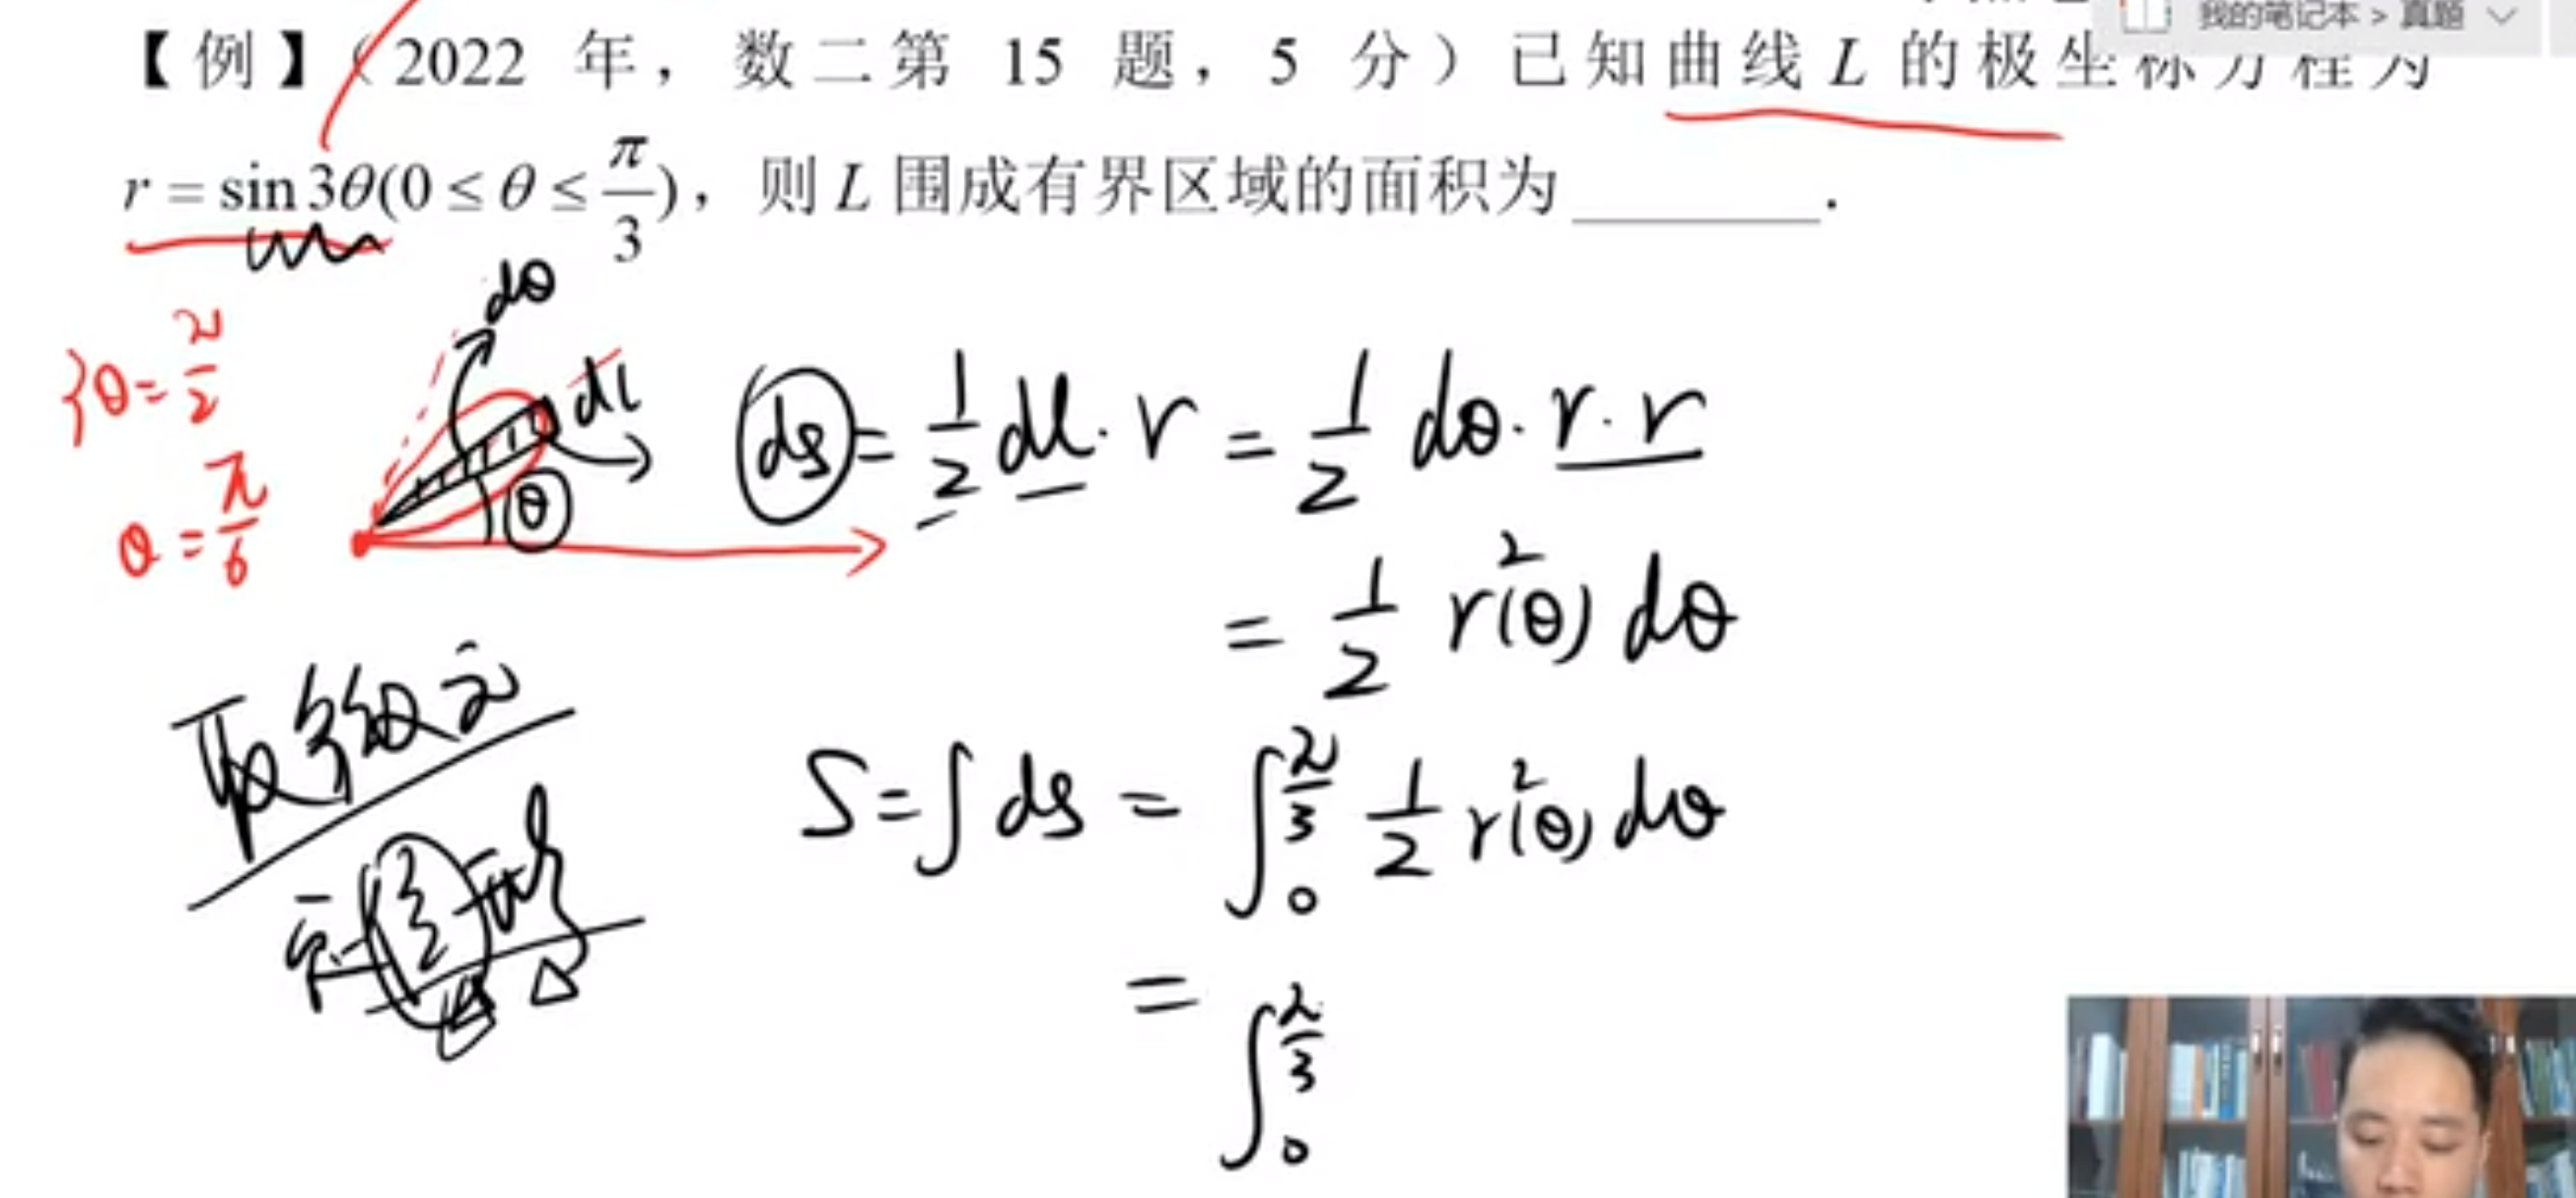 我的笔记本 > 真题
【例】（2022 年，数二第 15 题，5 分）已知曲线 L 的极坐标方程为
r = sin 3θ(0 ≤ θ ≤ π/3)，则 L 围成有界区域的面积为________.
dθ
dl
θ
θ = π/2
θ = π/6
ds = 1/2 dl · r = 1/2 dθ · r · r
= 1/2 r²(θ) dθ
取微元
S = ∫ ds = ∫₀^(π/3) 1/2 r²(θ) dθ
= ∫₀^(π/3)